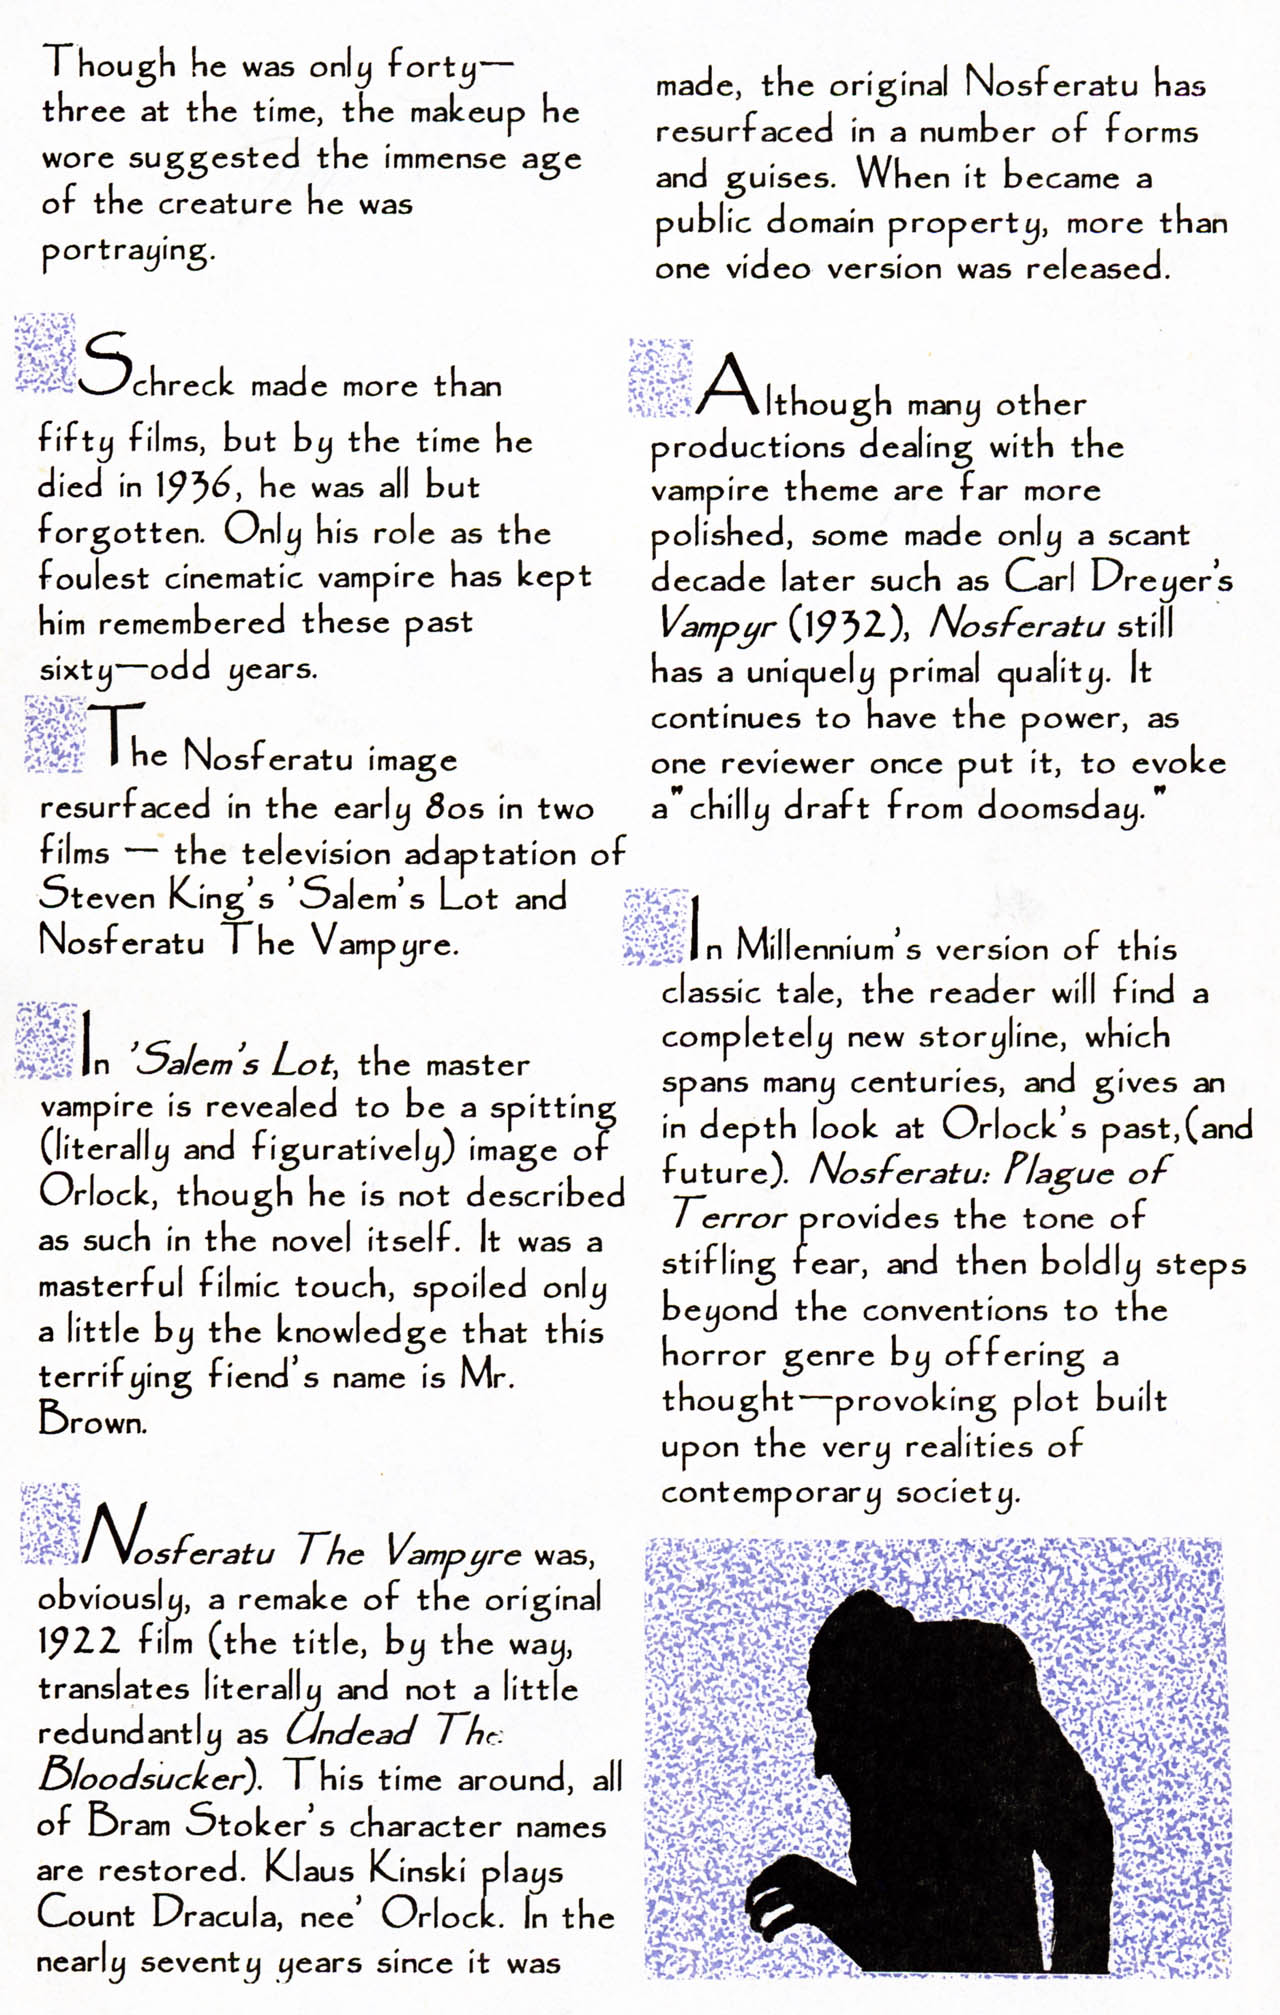 Though he was only forty—
three at the time, the makeup he
wore suggested the immense age
of the creature he was
portraying.
Schreck made more than
fifty films, but by the time he
died in 1936, he was all but
forgotten. Only his role as the
foulest cinematic vampire has kept
him remembered these past
sixty—odd years.
The Nosferatu image
resurfaced in the early 80s in two
films — the television adaptation of
Steven King's 'Salem's Lot and
Nosferatu The Vampyre.
In 'Salem's Lot, the master
vampire is revealed to be a spitting
(literally and figuratively) image of
Orlock, though he is not described
as such in the novel itself. It was a
masterful filmic touch, spoiled only
a little by the knowledge that this
terrifying fiend's name is Mr.
Brown.
Nosferatu The Vampyre was,
obviously, a remake of the original
1922 film (the title, by the way,
translates literally and not a little
redundantly as Undead The
Bloodsucker). This time around, all
of Bram Stoker's character names
are restored. Klaus Kinski plays
Count Dracula, nee' Orlock. In the
nearly seventy years since it was
made, the original Nosferatu has
resurfaced in a number of forms
and guises. When it became a
public domain property, more than
one video version was released.
Although many other
productions dealing with the
vampire theme are far more
polished, some made only a scant
decade later such as Carl Dreyer's
Vampyr (1932), Nosferatu still
has a uniquely primal quality. It
continues to have the power, as
one reviewer once put it, to evoke
a "chilly draft from doomsday."
In Millennium's version of this
classic tale, the reader will find a
completely new storyline, which
spans many centuries, and gives an
in depth look at Orlock's past,(and
future). Nosferatu: Plague of
Terror provides the tone of
stifling fear, and then boldly steps
beyond the conventions to the
horror genre by offering a
thought—provoking plot built
upon the very realities of
contemporary society.